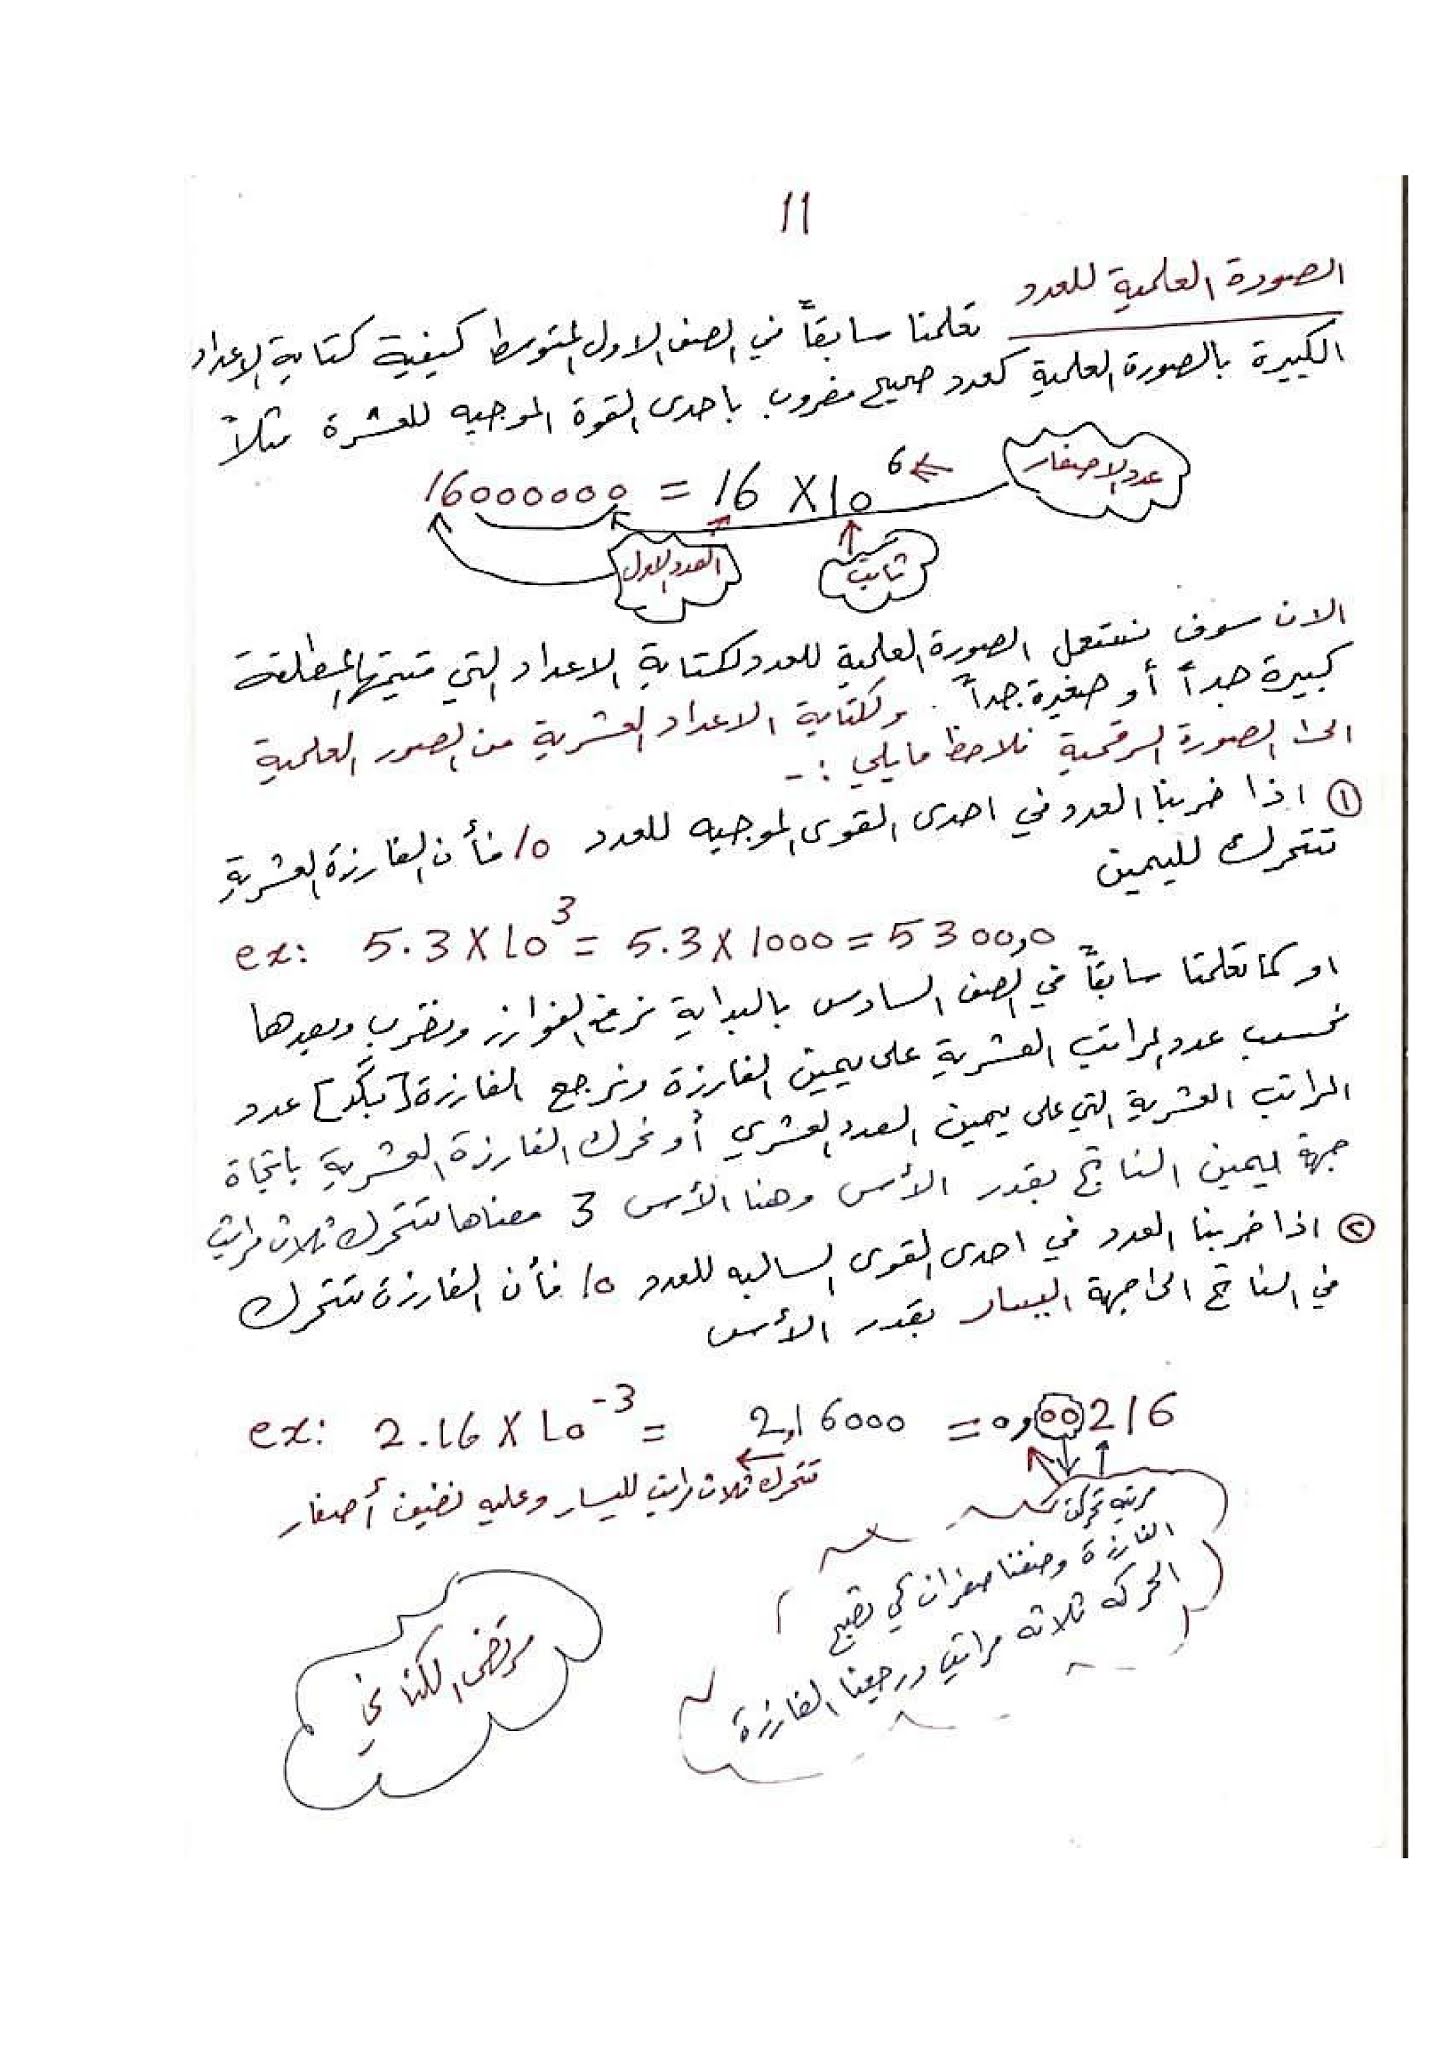 11
الصورة العلمية للعدد
تعلمنا سابقاً في الصف الاول المتوسط كيفية كتابة الاعداد
الكبيرة بالصورة العلمية كعدد صحيح مضروب باحدى القوة الموجبه للعشرة مثلاً
16000000 = 16 X 10^6
عدد الاصفار
العدد الاول
ثابت
الان سوف نستعمل الصورة العلمية للعدد لكتابة الاعداد التي قيمتها المطلقة
كبيرة جداً أو صغيرة جداً. ولكتابة الاعداد العشرية من الصور العلمية
الى الصورة الرقمية نلاحظ مايلي :-
① اذا ضربنا العدد في احدى القوى الموجبه للعدد 10 فأن الفارزة العشرية
تتحرك لليمين
ex: 5.3 X 10^3 = 5.3 X 1000 = 5300,0
او كما تعلمنا سابقاً في الصف السادس بالبداية نرفع الفوارز ونضرب وبعدها
نحسب عدد المراتب العشرية على يمين الفارزة ونرجع الفارزة [ ] عدد
المراتب العشرية التي على يمين العدد العشري أو نحرك الفارزة العشرية باتجاة
جهة اليمين الناتج بقدر الأس وهنا الأس 3 معناها تتحرك ثلاث مراتب
② اذا ضربنا العدد في احدى القوى السالبه للعدد 10 فأن الفارزة تتحرك
في الناتج الى جهة اليسار بقدر الأس
ex: 2.16 X 10^-3 = 2,16000 = 0,00216
تتحرك ثلاث مراتب لليسار وعليه نضيف أصفار
مرتبه تحركت
الفارزة وضفنا صفران كي تصبح
الحركه ثلاثه مراتب ورجعنا الفارزة
مرتضى الكناني